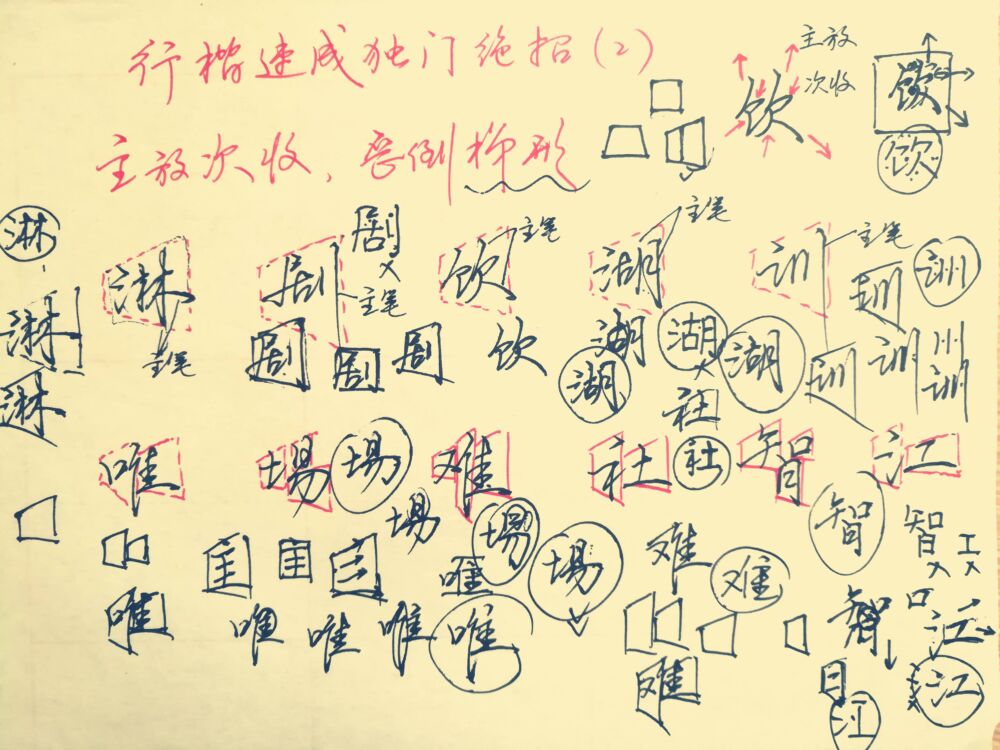 行楷速成独门绝招(2)
主放
次收
饮 饮
饮
主放次收,歪倒梯形
淋 淋 剧 剧 饮 主笔 湖 主笔 训 主笔 训 训
淋 主笔 主笔
剧 剧 剧 饮 湖 湖 湖 训 训 川
淋 湖 社 训
唯 場 場 难 社 社 智 江
場 場 智 智 工
唯 場 难 难
唯 唯 唯 唯 唯 智 口 江
难 日 江
江